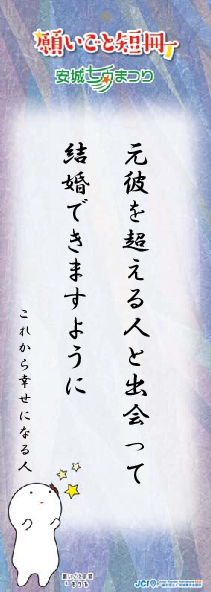 願いごと短冊
安城七夕まつり
元彼を超える人と出会って
結婚できますように
これから幸せになる人
願いごと短冊
JCI